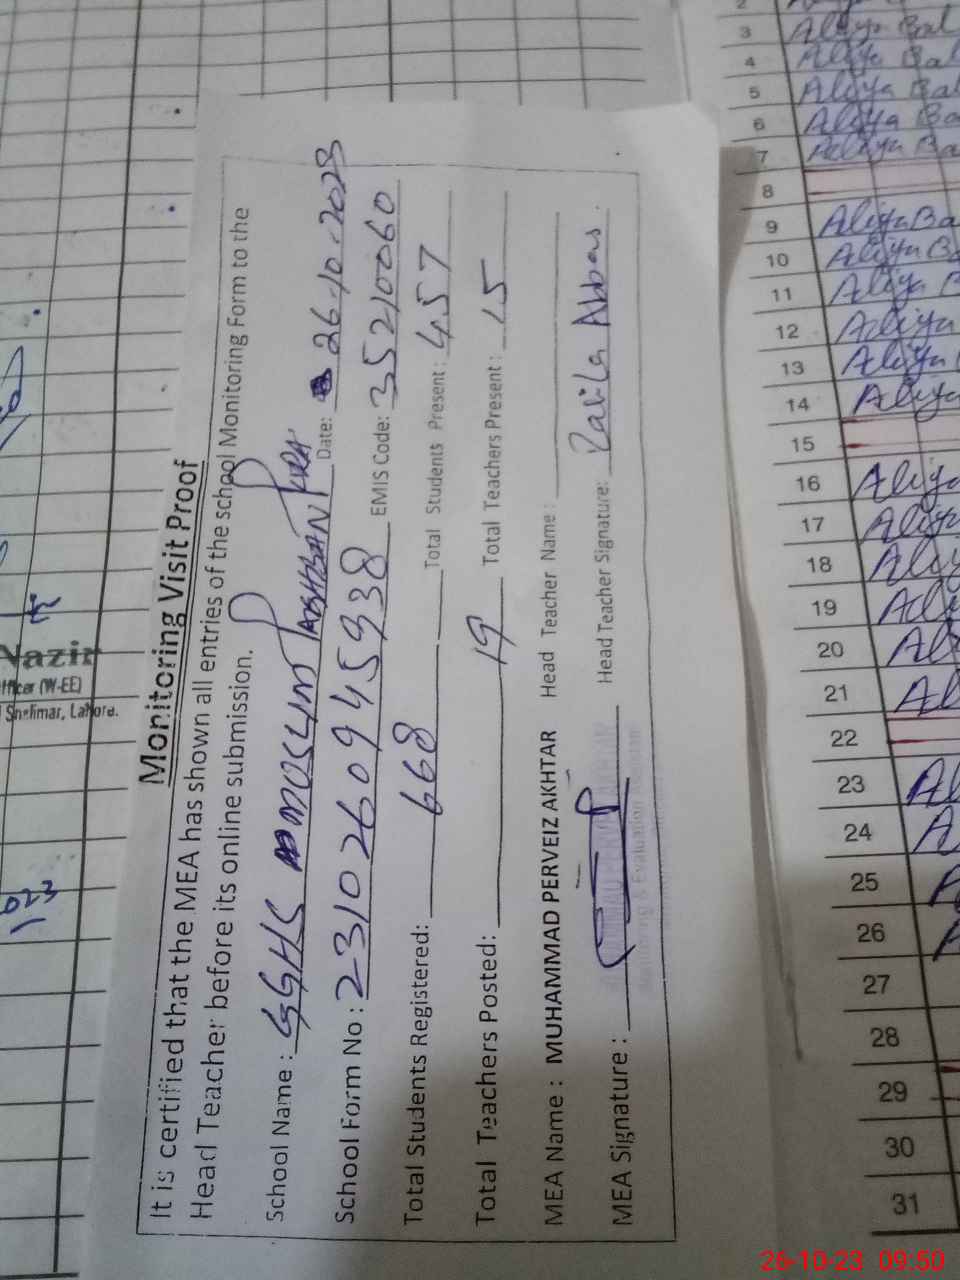 Monitoring Visit Proof
It is certified that the MEA has shown all entries of the school Monitoring Form to the
Head Teacher before its online submission.
School Name : GGHS MUSLIM Date: 26-10-2023
School Form No : 2310260945938 EMIS Code: 35210060
Total Students Registered: 668 Total Students Present : 457
Total Teachers Posted: 19 Total Teachers Present : 15
MEA Name : MUHAMMAD PERVEIZ AKHTAR Head Teacher Name :
MEA Signature : Head Teacher Signature: Abbas
Nazir
Officer (W-EE)
Shalimar, Lahore.
2
3 Aliya Bal
4 Aliya Bal
5 Aliya Bal
6 Aliya Ba
7 Aliya Ba
8
9 Aliya Ba
10 Aliya Ba
11 Aliya B
12 Aliya
13 Aliya
14 Aliya
15
16 Aliya
17 Aliya
18 Aliy
19 Ali
20 Al
21 Al
22
23 Al
24 A
25 A
26 A
27
28
29
30
31
26-10-23 09:50